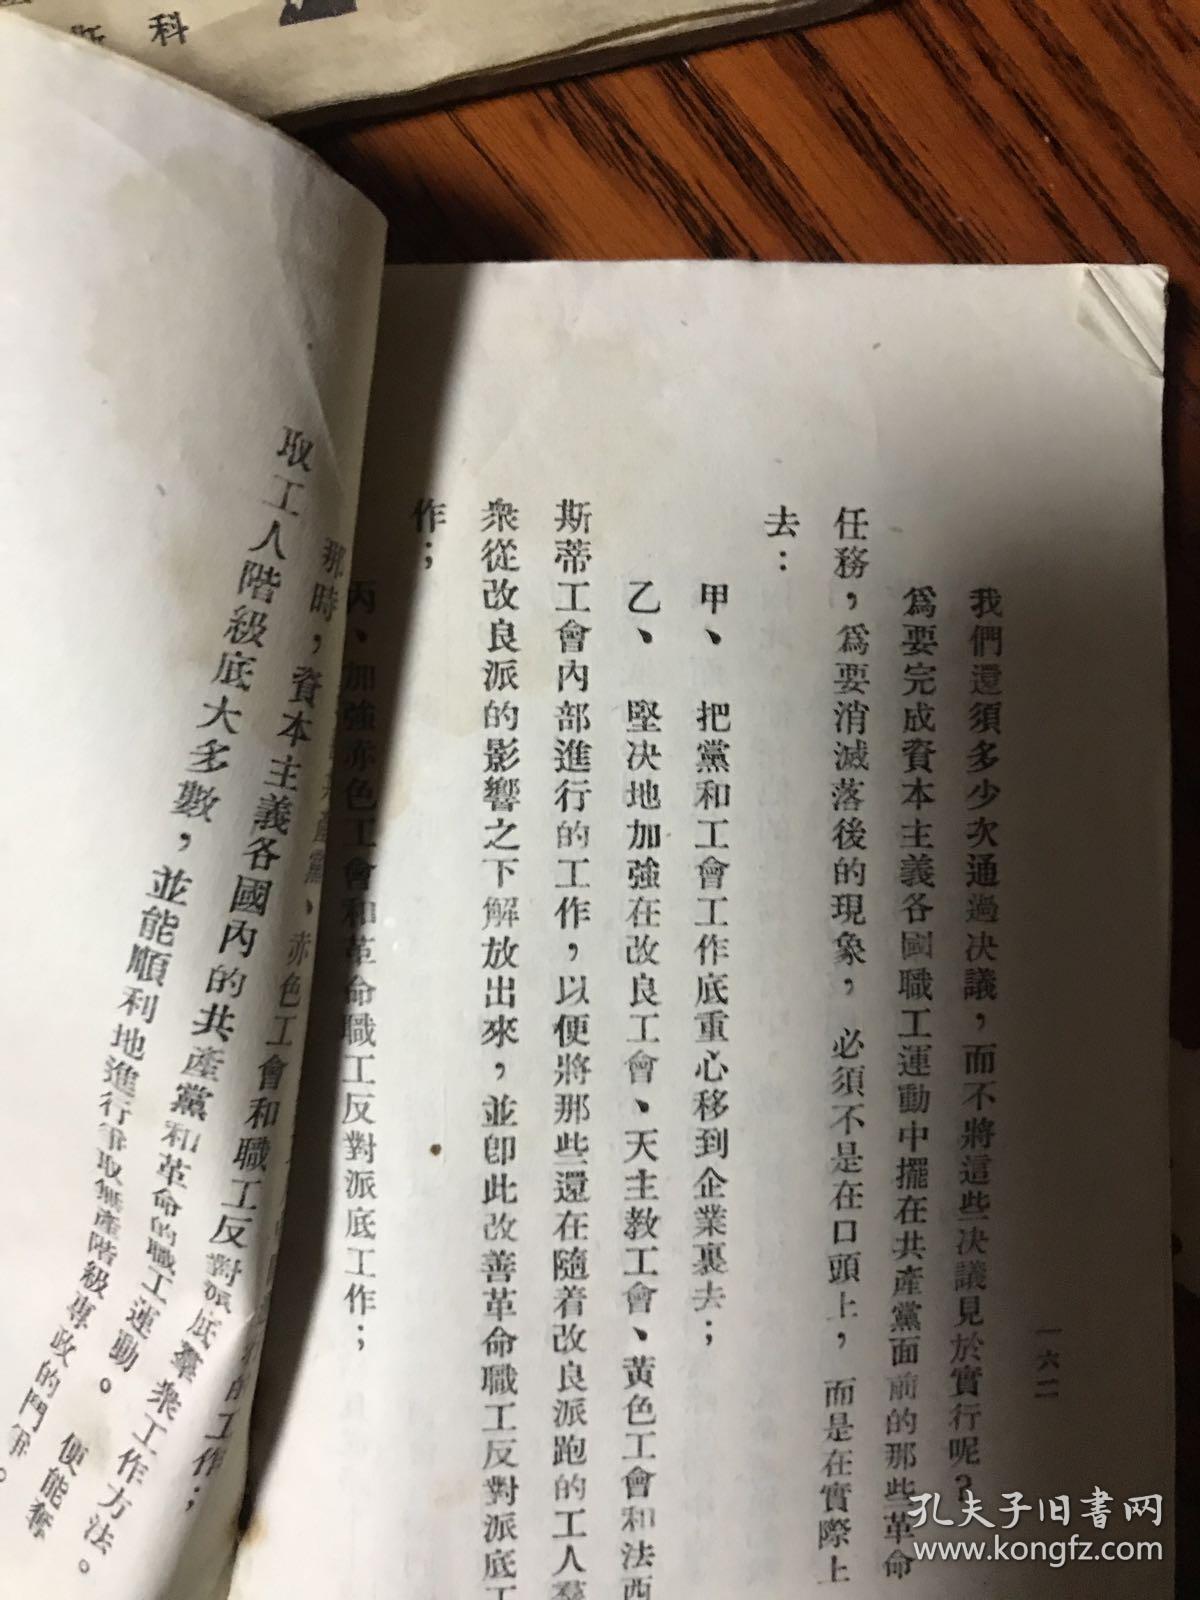 斯科
一六二
我們還須多少次通過决議，而不將這些决議見於實行呢？
爲要完成資本主義各國職工運動中擺在共產黨面前的那些革命
任務，爲要消滅落後的現象，必須不是在口頭上，而是在實際上
去：
甲、把黨和工會工作底重心移到企業裏去；
乙、堅决地加強在改良工會、天主教工會、黃色工會和法西
斯蒂工會內部進行的工作，以便將那些還在隨着改良派跑的工人羣
衆從改良派的影響之下解放出來，並卽此改善革命職工反對派底工
作；
丙、加強赤色工會和革命職工反對派底工作；
產黨、赤色工會和職工反對派底羣衆工作方法。
那時，資本主義各國內的共產黨和革命的職工運動。便能奪
取工人階級底大多數，並能順利地進行爭取無產階級專政的鬥爭。
的工作；
孔夫子旧書网
www.kongfz.com